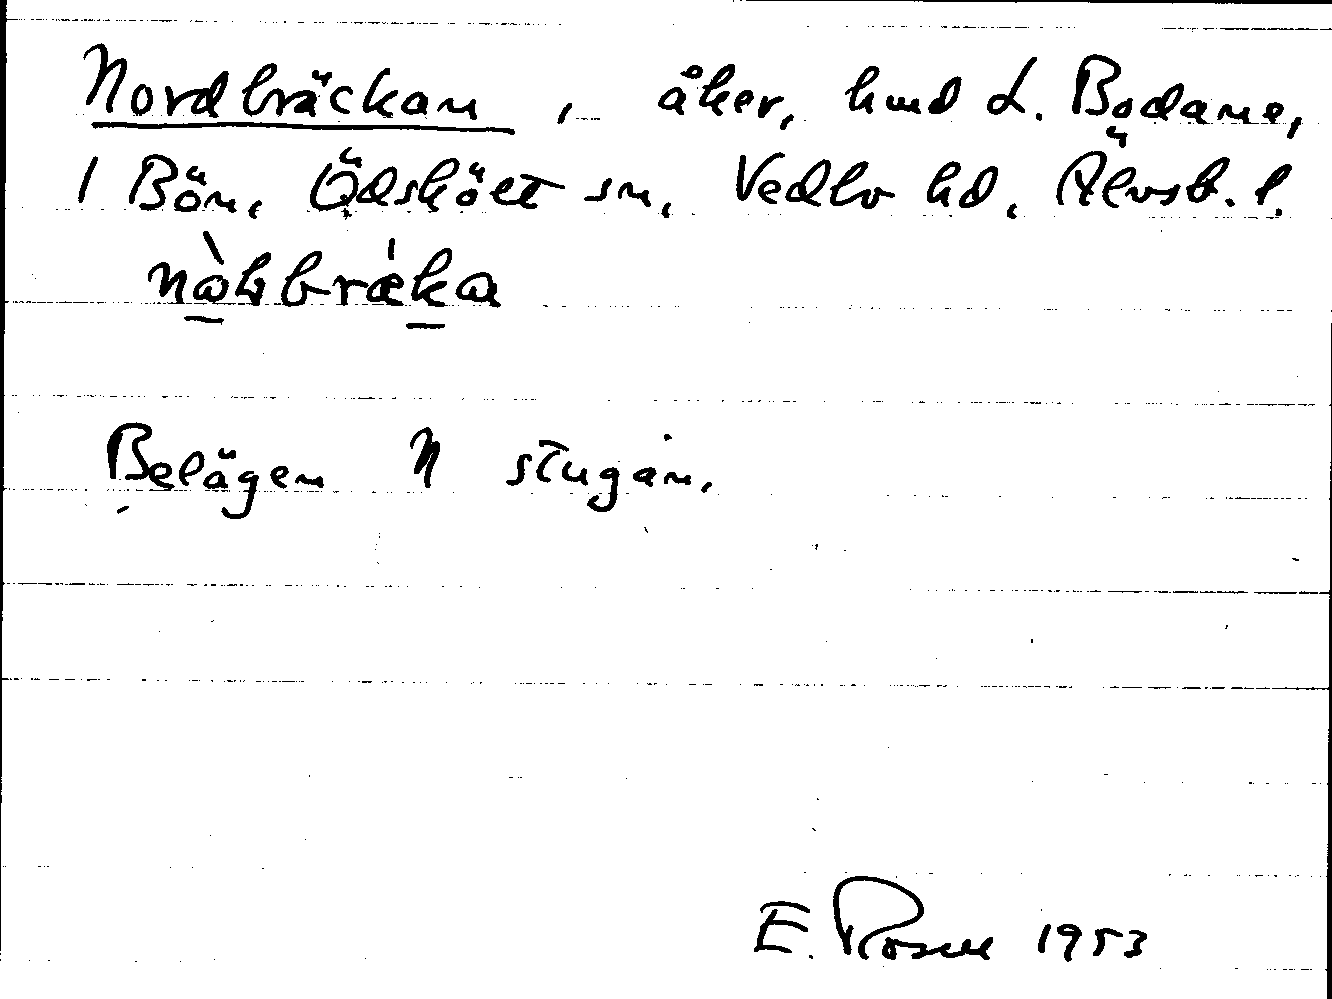 Nordbräckan, åker, hmd L. Bodane,
1 Bön, Ödskölt sn, Vedbo hd, Älvsb. l.
Belägen N stugan.
E. Rosell 1953